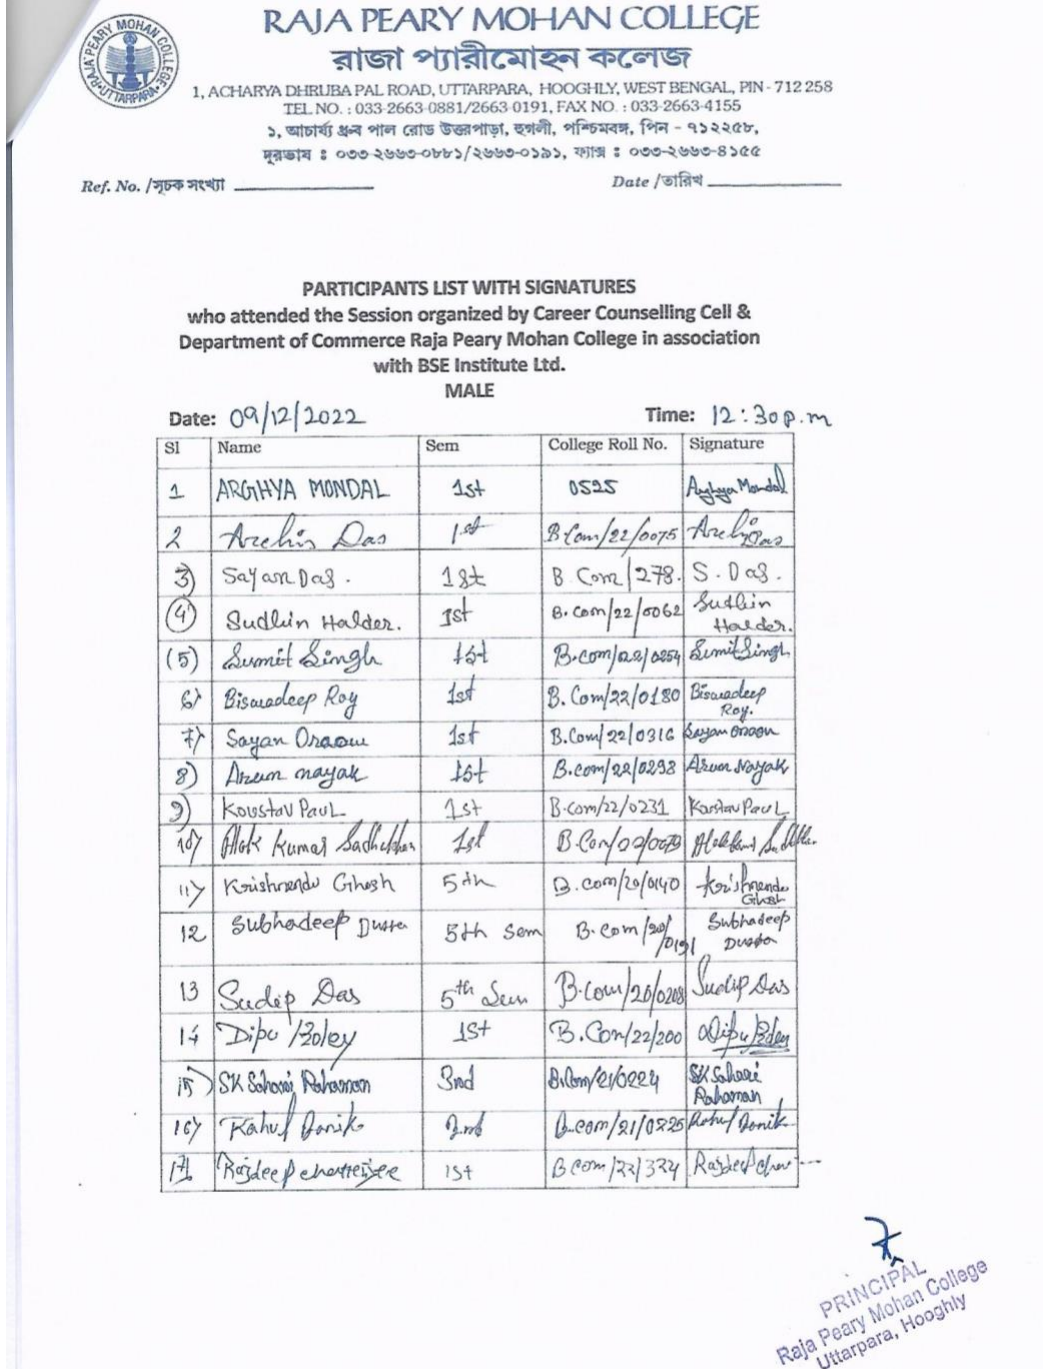 RAJA PEARY MOHAN COLLEGE
রাজা প্যারীমোহন কলেজ
RAJA PEARY MOHAN COLLEGE
UTTARPARA
1, ACHARYA DHRUBA PAL ROAD, UTTARPARA, HOOGHLY, WEST BENGAL, PIN - 712 258
TEL NO. : 033-2663-0881/2663-0191, FAX NO. : 033-2663-4155
১, আচার্য্য ধ্রুব পাল রোড উত্তরপাড়া, হুগলী, পশ্চিমবঙ্গ, পিন - ৭১২২৫৮,
দূরভাষ : ০৩৩-২৬৬৩-০৮৮১/২৬৬৩-০১৯১, ফ্যাক্স : ০৩৩-২৬৬৩-৪১৫৫
Ref. No. /সূচক সংখ্যা Date /তারিখ
PARTICIPANTS LIST WITH SIGNATURES
who attended the Session organized by Career Counselling Cell &
Department of Commerce Raja Peary Mohan College in association
with BSE Institute Ltd.
MALE
Date: 09/12/2022 Time: 12:30 p.m
Sl Name Sem College Roll No. Signature
1 ARGHYA MONDAL 1st 0525 Arghya Mondal
2 Archis Das 1st B.Com/22/0075 Das
3) Sayan Das. 1st B.Com/278. S. Das.
4 Sudhin Halder. 1st B.com/22/0062 Sudhin Halder.
(5) Sumit Singh 1st B.com/22/0254 Sumit Singh
6) Biswadeep Roy 1st B.Com/22/0180 Biswadeep Roy.
7) Sayan Oraon 1st B.Com/22/0316 Sayan Oraon
8) Arun nayak 1st B.com/22/0298 Arun Nayak
9) Koustav Paul 1st B.com/22/0231 Koustav Paul
10) Alok Kumar 1st
11) Krishnendu Ghosh 5th B.com/20/0140 Krishnendu Ghosh
12 Subhadeep Dutta 5th Sem B.com/20/0191 Subhadeep Dutta
13 Sudip Das 5th Sem B.Com/20/0208 Sudip Das
14 Dipu 1st B.Com/22/200 Dipu
15) SK Rahaman 3rd B.Com/21/0224 SK Rahaman
16) Rahul 2nd B.com/21/0225 Rahul
17 Rajdeep Chatterjee 1st B Com/22/324 Rajdeep
PRINCIPAL
Raja Peary Mohan College
Uttarpara, Hooghly